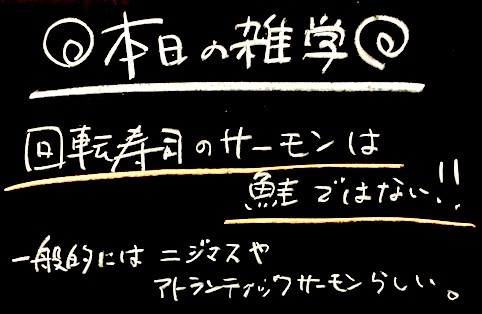 本日の雑学
回転寿司のサーモンは
鮭ではない!!
一般的にはニジマスや
アトランティックサーモンらしい。